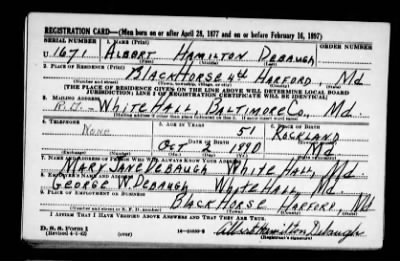 REGISTRATION CARD—(Men born on or after April 28, 1877 and on or before February 16, 1897)
SERIAL NUMBER 1. NAME (Print) ORDER NUMBER
1671 ALBERT HAMILTON DEBAUGH
(First) (Middle) (Last)
2. PLACE OF RESIDENCE (Print)
BLACK HORSE 4th HARFORD, Md
(Number and street) (Town, township, village, or city) (County) (State)
[THE PLACE OF RESIDENCE GIVEN ON THE LINE ABOVE WILL DETERMINE LOCAL BOARD
JURISDICTION; LINE 2 OF REGISTRATION CERTIFICATE WILL BE IDENTICAL]
3. MAILING ADDRESS
R.D.- WHITE HALL, BALTIMORE Co., Md.
[Mailing address if other than place indicated on line 2. If same insert word same]
4. TELEPHONE 5. AGE IN YEARS 6. PLACE OF BIRTH
NONE 51 ROCKLAND
DATE OF BIRTH
OCT 2 1890 Md
(Exchange) (Number) (Mo.) (Day) (Yr.) (State or country)
7. NAME AND ADDRESS OF PERSON WHO WILL ALWAYS KNOW YOUR ADDRESS
MARY JANE DEBAUGH WHITE HALL, Md.
8. EMPLOYER'S NAME AND ADDRESS
GEORGE W. DEBAUGH WHITE HALL, Md.
9. PLACE OF EMPLOYMENT OR BUSINESS
BLACK HORSE HARFORD, Md
(Number and street or R. F. D. number) (Town) (County) (State)
I AFFIRM THAT I HAVE VERIFIED ABOVE ANSWERS AND THAT THEY ARE TRUE.
D. S. S. Form 1
(Revised 4-1-42) (over) Albert Hamilton Debaugh
(Registrant's signature)